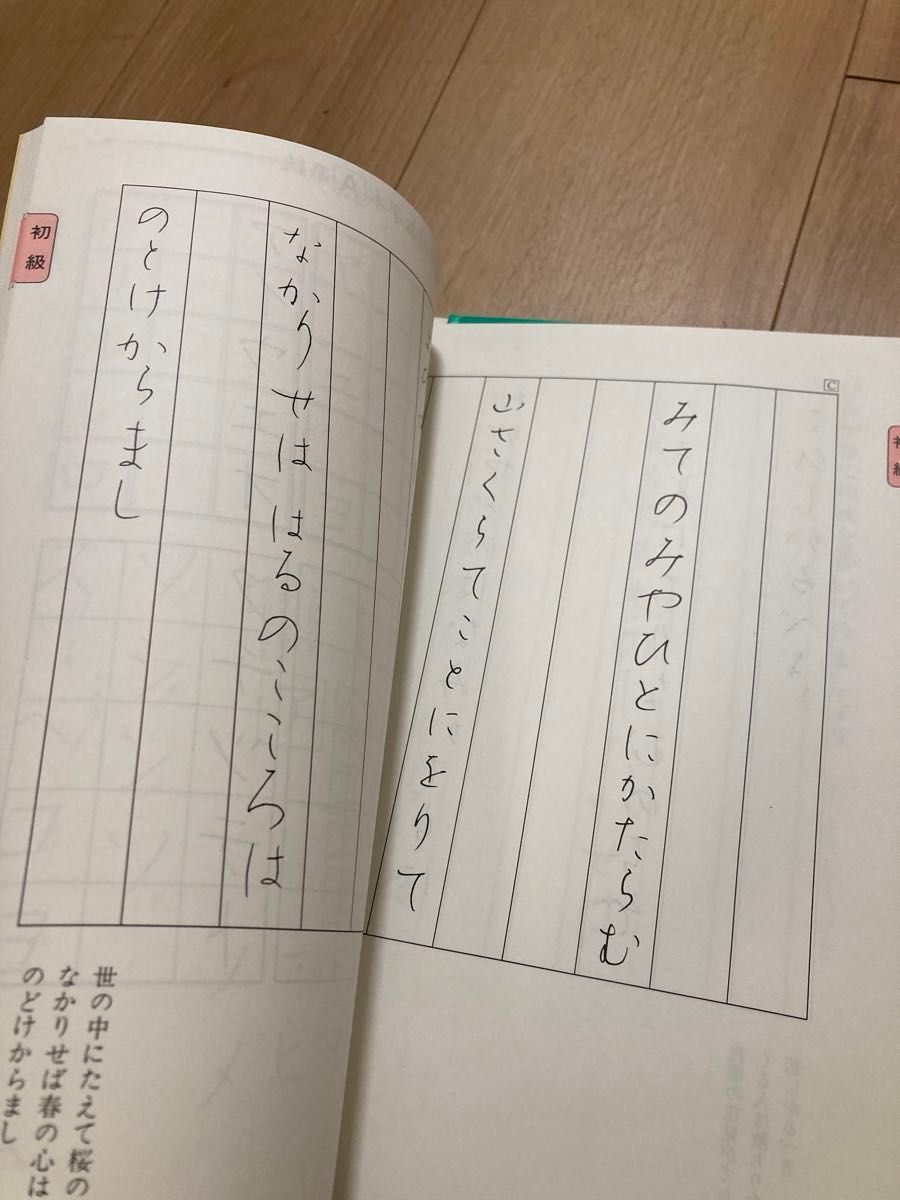 C
みてのみやひとにかたらむ
山さくらてことにをりて
初級
なかりせははるのこころは
のとけからまし
初級
世の中にたえて桜の
なかりせば春の心は
のどけからまし